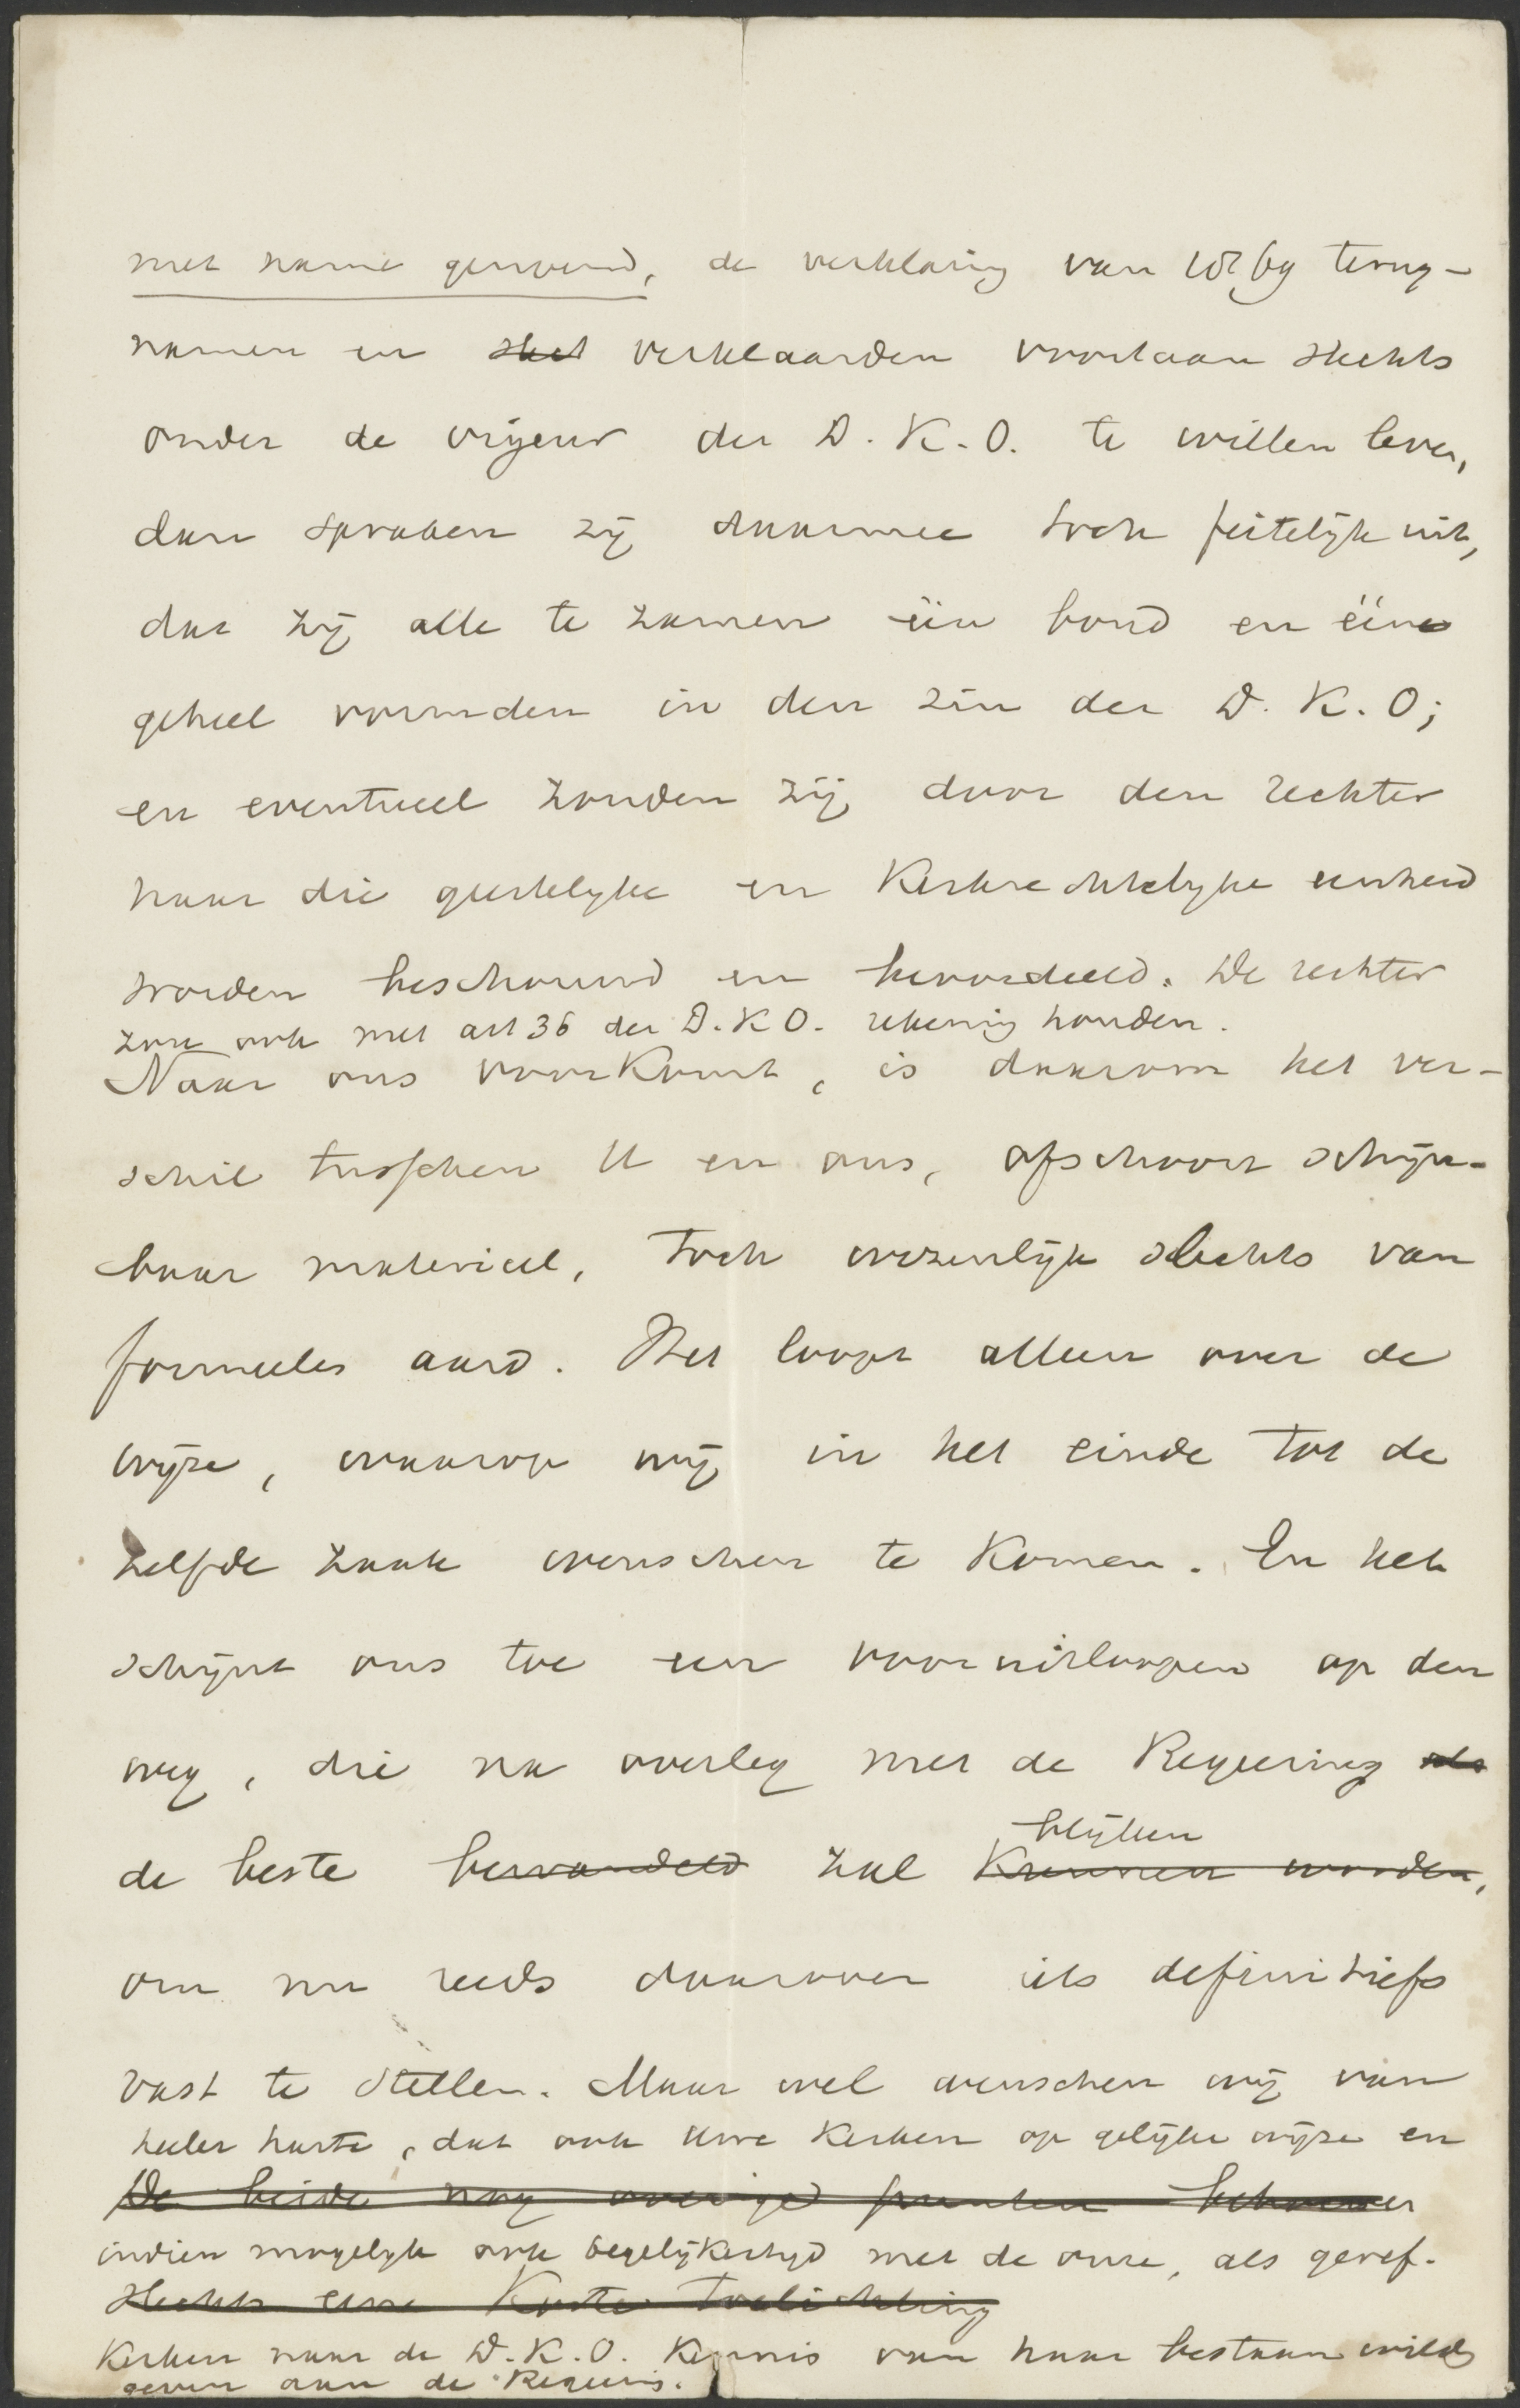 met name genoemd, de verklaring van 1869 terug-
namen en slech verklaarden voortaan slechts
onder de vigeur der D. K. O. te willen leven,
dan spraken zij daarmee toch feitelijk uit,
dat zij alle te zamen één bond en één
geheel vormden in den zin der D. K. O;
en eventueel zouden zij door den rechter
naar die geestelijke en Kerkrechtelijke eenheid
worden beschouwd en beoordeeld. De rechter
zou ook met art 36 der D. K O. rekening houden.
Naar ons voorkomt, is daarom het ver-
schil tusschen U en ons, ofschoon schijn-
baar materieel, toch wezenlijk slechts van
formeelen aard. Het loopt alleen over de
wijze, waarop wij in het einde tot de
zelfde zaak wenschen te komen. En het
schijnt ons toe een vooruitloopen op den
weg, die na overleg met de Regeering als
de beste bewandeld zal kunnen worden,
blijken
om nu reeds daarover iets definitiefs
vast te stellen. Maar wel wenschen wij van
heeler harte, dat ook Uwe Kerken op gelijke wijze en
De beide nog overige punten behoeven
indien mogelijk ook tegelijkertijd met de onze, als geref.
slechts eene korte toelichting
Kerken naar de D. K. O. Kennis van haar bestaan wilde
geven aan de Regeering.